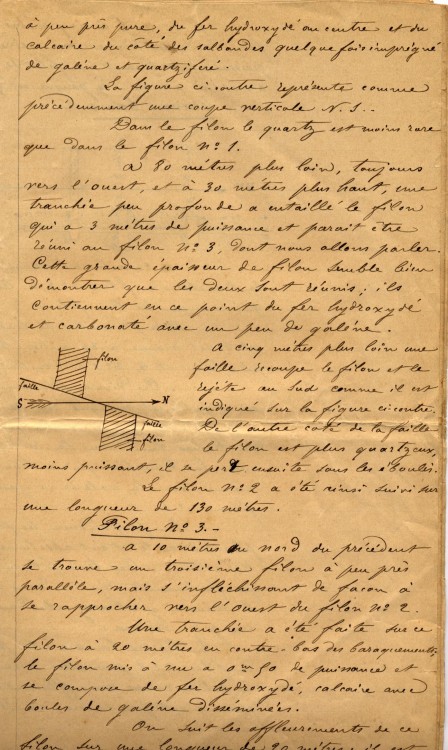 à peu près pure, du fer hydroxydé au centre et du
calcaire du côté des salbandes quelquefois imprégné
de galène et quartzifère.
La figure ci-contre représente comme
précédemment une coupe verticale N.S..
Dans le filon le quartz est moins rare
que dans le filon No 1.
A 80 mètres plus loin, toujours
vers l'ouest, et à 30 mètres plus haut, une
tranchée peu profonde a entaillé le filon
qui a 3 mètres de puissance et parait être
réuni au filon No 3, dont nous allons parler.
Cette grande épaisseur de filon semble bien
démontrer que les deux sont réunis; ils
contiennent en ce point du fer hydroxydé
et carbonaté avec un peu de galène.
A cinq mètres plus loin une
faille découpe le filon et le
rejète au sud comme il est
indiqué sur la figure ci.contre.
De l'autre côté de la faille
le filon est plus quartzeux,
moins puissant, il se perd ensuite sous les éboulis.
filon
faille
S
N
faille
filon
Le filon No 2 a été ainsi suivi sur
une longueur de 130 mètres.
Filon No 3.-
A 10 mètres au nord du précédent
se trouve un troisième filon à peu près
parallèle, mais s'infléchissant de façon à
se rapprocher vers l'ouest du filon No 2.
Une tranchée a été faite sur ce
filon à 20 mètres en contre-bas des baraquements;
le filon mis à nu a 0m50 de puissance et
se compose de fer hydroxydé, calcaire avec
boules de galène disséminées.
On suit les affleurements de ce
filon sur une longueur de 20 mètres, il est